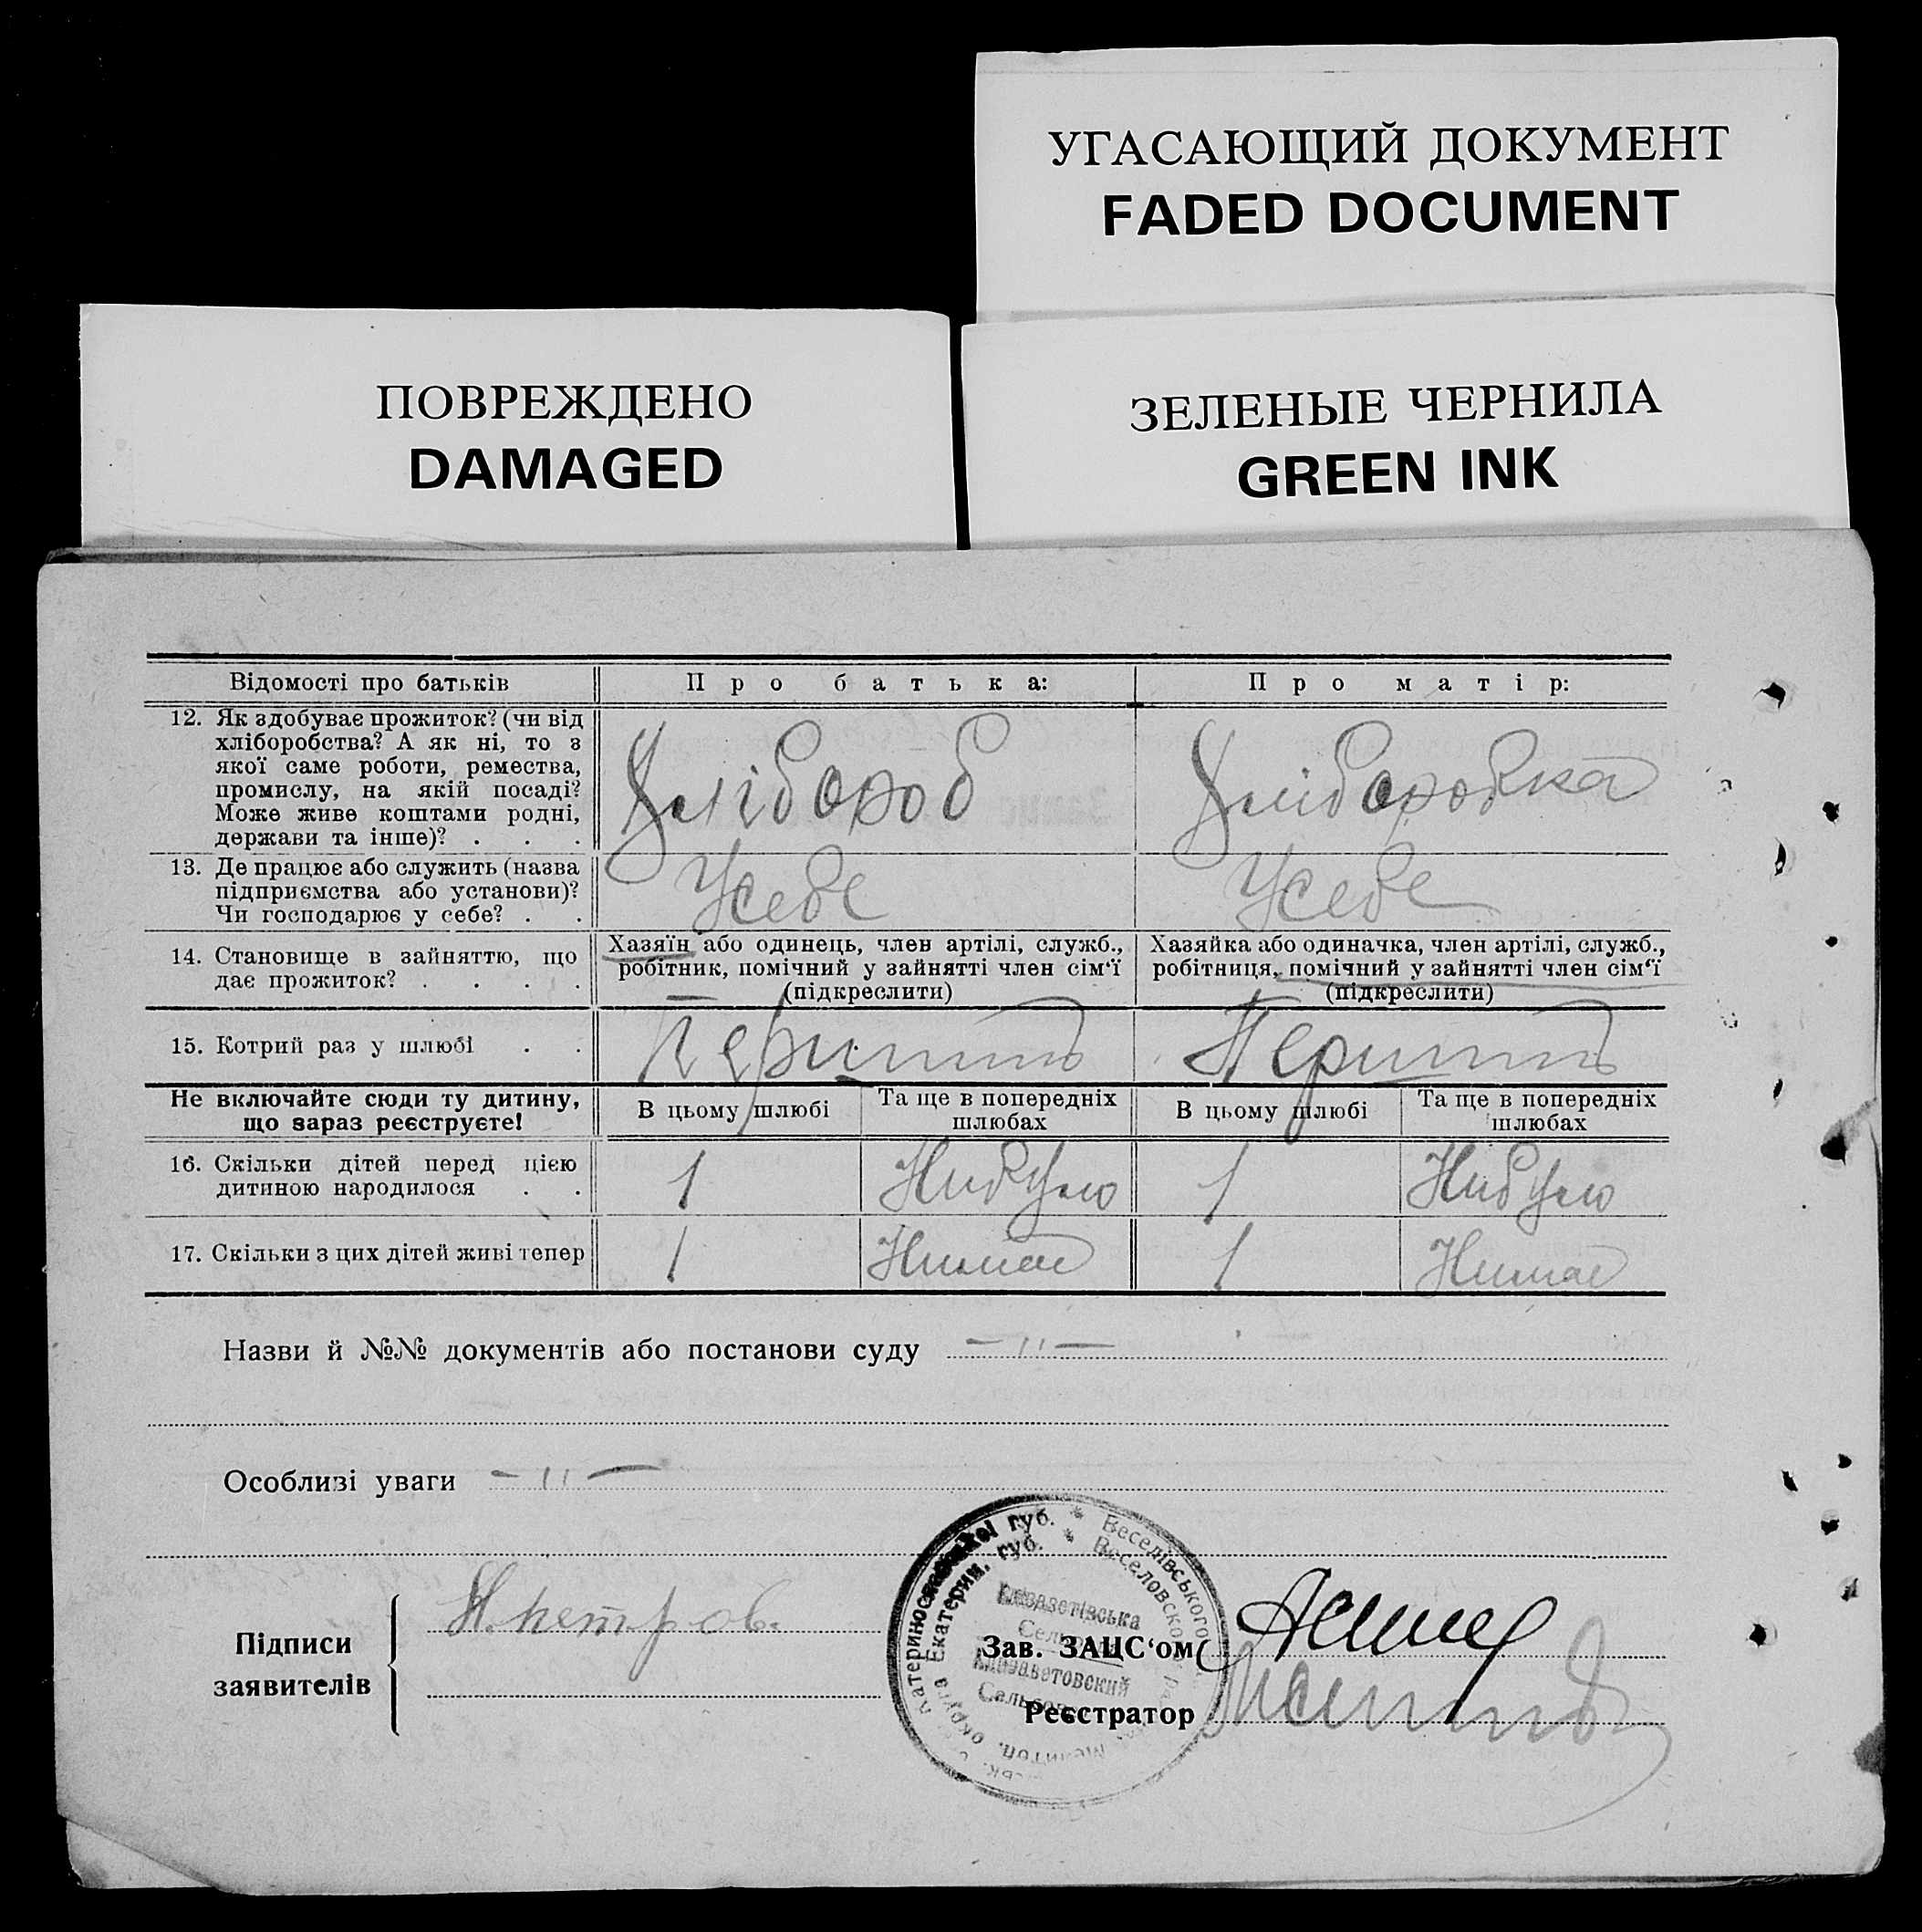 УГАСАЮЩИЙ ДОКУМЕНТ
FADED DOCUMENT
ПОВРЕЖДЕНО
DAMAGED
ЗЕЛЕНЫЕ ЧЕРНИЛА
GREEN INK
Відомості про батьків
Про батька:
Про матір:
12. Як здобуває прожиток? (чи від
хліборобства? А як ні, то з
якої саме роботи, ремества,
промислу, на якій посаді?
Може живе коштами родні,
держави та інше)? . . .
Хлібороб
Хліборобка
13. Де працює або служить (назва
підприємства або установи)?
Чи господарює у себе? . .
Усебе
Усебе
14. Становище в зайняттю, що
дає прожиток? . . . .
Хазяїн або одинець, член артілі, служб.,
робітник, помічний у зайнятті член сім‘ї
(підкреслити)
Хазяйка або одиначка, член артілі, служб.,
робітниця, помічний у зайнятті член сім‘ї
(підкреслити)
15. Котрий раз у шлюбі . .
Не включайте сюди ту дитину,
що зараз реєструєте!
В цьому шлюбі
Та ще в попередніх
шлюбах
В цьому шлюбі
Та ще в попередніх
шлюбах
16. Скільки дітей перед цією
дитиною народилося . .
1
Нибуло
1
Нибуло
17. Скільки з цих дітей живі тепер
1
Нимає
1
Нимає
Назви й №№ документів або постанови суду — " —
Особливі уваги — " —
Підписи
заявителів
Зав. ЗАЦС‘ом
Реєстратор
губ. * Веселівського
Екатерин. губ. * Веселовско
Єлизаветівська
Елизаветовский